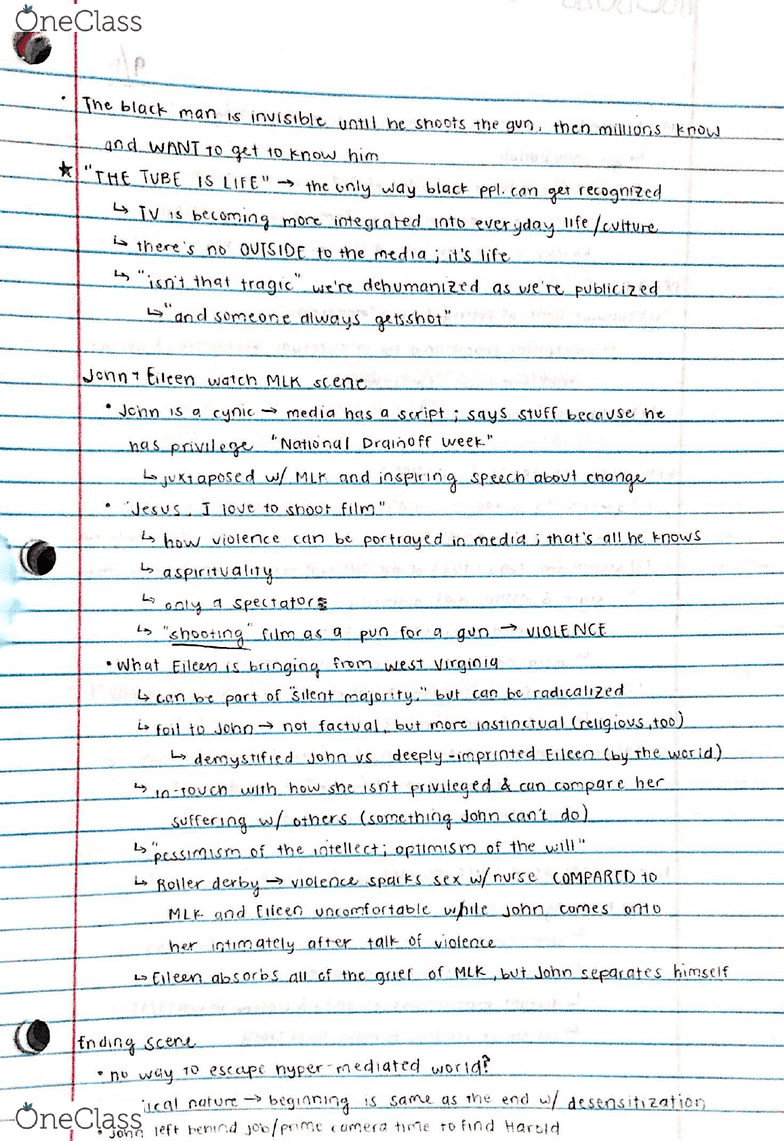 OneClass
• The black man is invisible until he shoots the gun, then millions know
and WANT to get to know him
★ "THE TUBE IS LIFE" → the only way black ppl. can get recognized
↳ TV is becoming more integrated into everyday life/culture
↳ there's no OUTSIDE to the media; it's life
↳ "isn't that tragic" we're dehumanized as we're publicized
↳ "and someone always getsshot"
John + Eileen watch MLK scene
• John is a cynic → media has a script; says stuff because he
has privilege "National Drainoff week"
↳ juxtaposed w/ MLK and inspiring speech about change
• "Jesus, I love to shoot film"
↳ how violence can be portrayed in media; that's all he knows
↳ aspirituality
↳ only a spectator
↳ "shooting" film as a pun for a gun → VIOLENCE
• What Eileen is bringing from West Virginia
↳ can be part of "silent majority," but can be radicalized
↳ foil to John → not factual, but more instinctual (religious, too)
↳ demystified John vs deeply-imprinted Eileen (by the world)
↳ in-touch with how she isn't privileged & can compare her
suffering w/ others (something John can't do)
↳ "pessimism of the intellect; optimism of the will"
↳ Roller derby → violence sparks sex w/ nurse COMPARED to
MLK and Eileen uncomfortable while John comes onto
her intimately after talk of violence
↳ Eileen absorbs all of the grief of MLK, but John separates himself
Ending scene
• no way to escape hyper-mediated world?
ical nature → beginning is same as the end w/ desensitization
OneClass
• John left behind job/prime camera time to find Harold